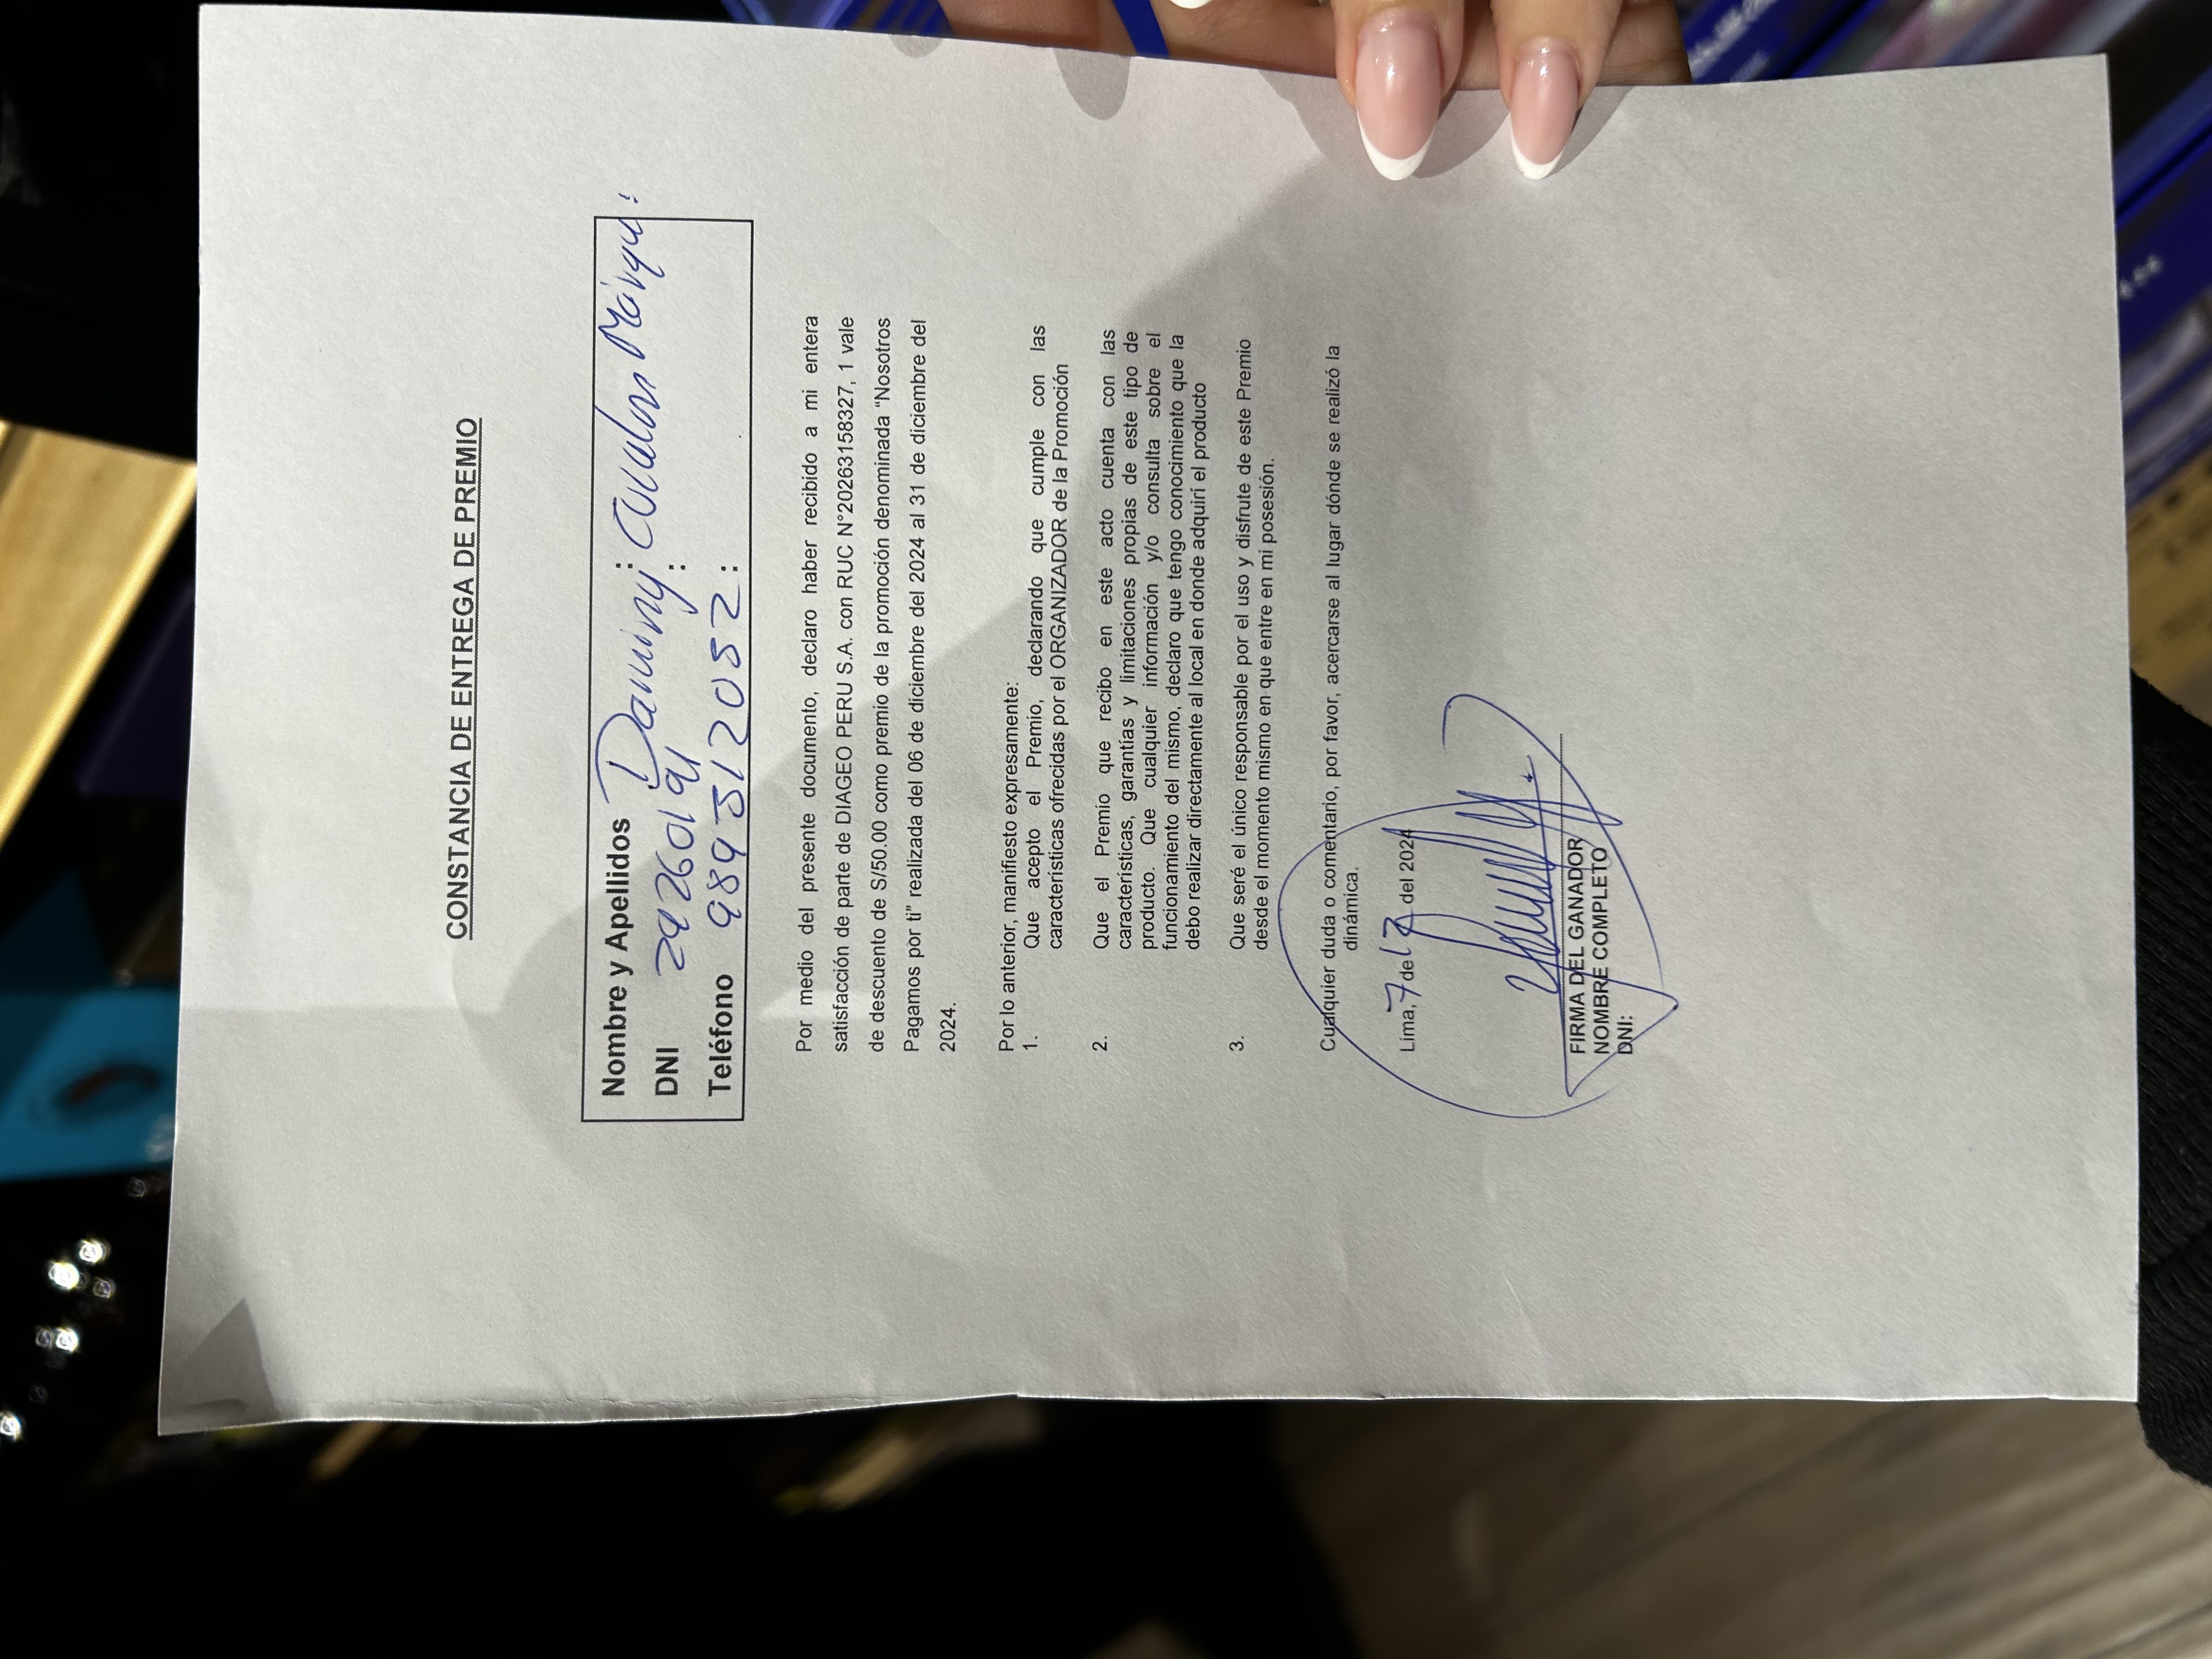 CONSTANCIA DE ENTREGA DE PREMIO
Nombre y Apellidos :
DNI 29260191 :
Teléfono 989312052 :
Por medio del presente documento, declaro haber recibido a mi entera
satisfacción de parte de DIAGEO PERU S.A. con RUC N°20263158327, 1 vale
de descuento de S/50.00 como premio de la promoción denominada “Nosotros
Pagamos por ti” realizada del 06 de diciembre del 2024 al 31 de diciembre del
2024.
Por lo anterior, manifiesto expresamente:
1. Que acepto el Premio, declarando que cumple con las
características ofrecidas por el ORGANIZADOR de la Promoción
2. Que el Premio que recibo en este acto cuenta con las
características, garantías y limitaciones propias de este tipo de
producto. Que cualquier información y/o consulta sobre el
funcionamiento del mismo, declaro que tengo conocimiento que la
debo realizar directamente al local en donde adquirí el producto
3. Que seré el único responsable por el uso y disfrute de este Premio
desde el momento mismo en que entre en mi posesión.
Cualquier duda o comentario, por favor, acercarse al lugar dónde se realizó la
dinámica.
Lima, 7 de 12 del 2024
FIRMA DEL GANADOR
NOMBRE COMPLETO
DNI: